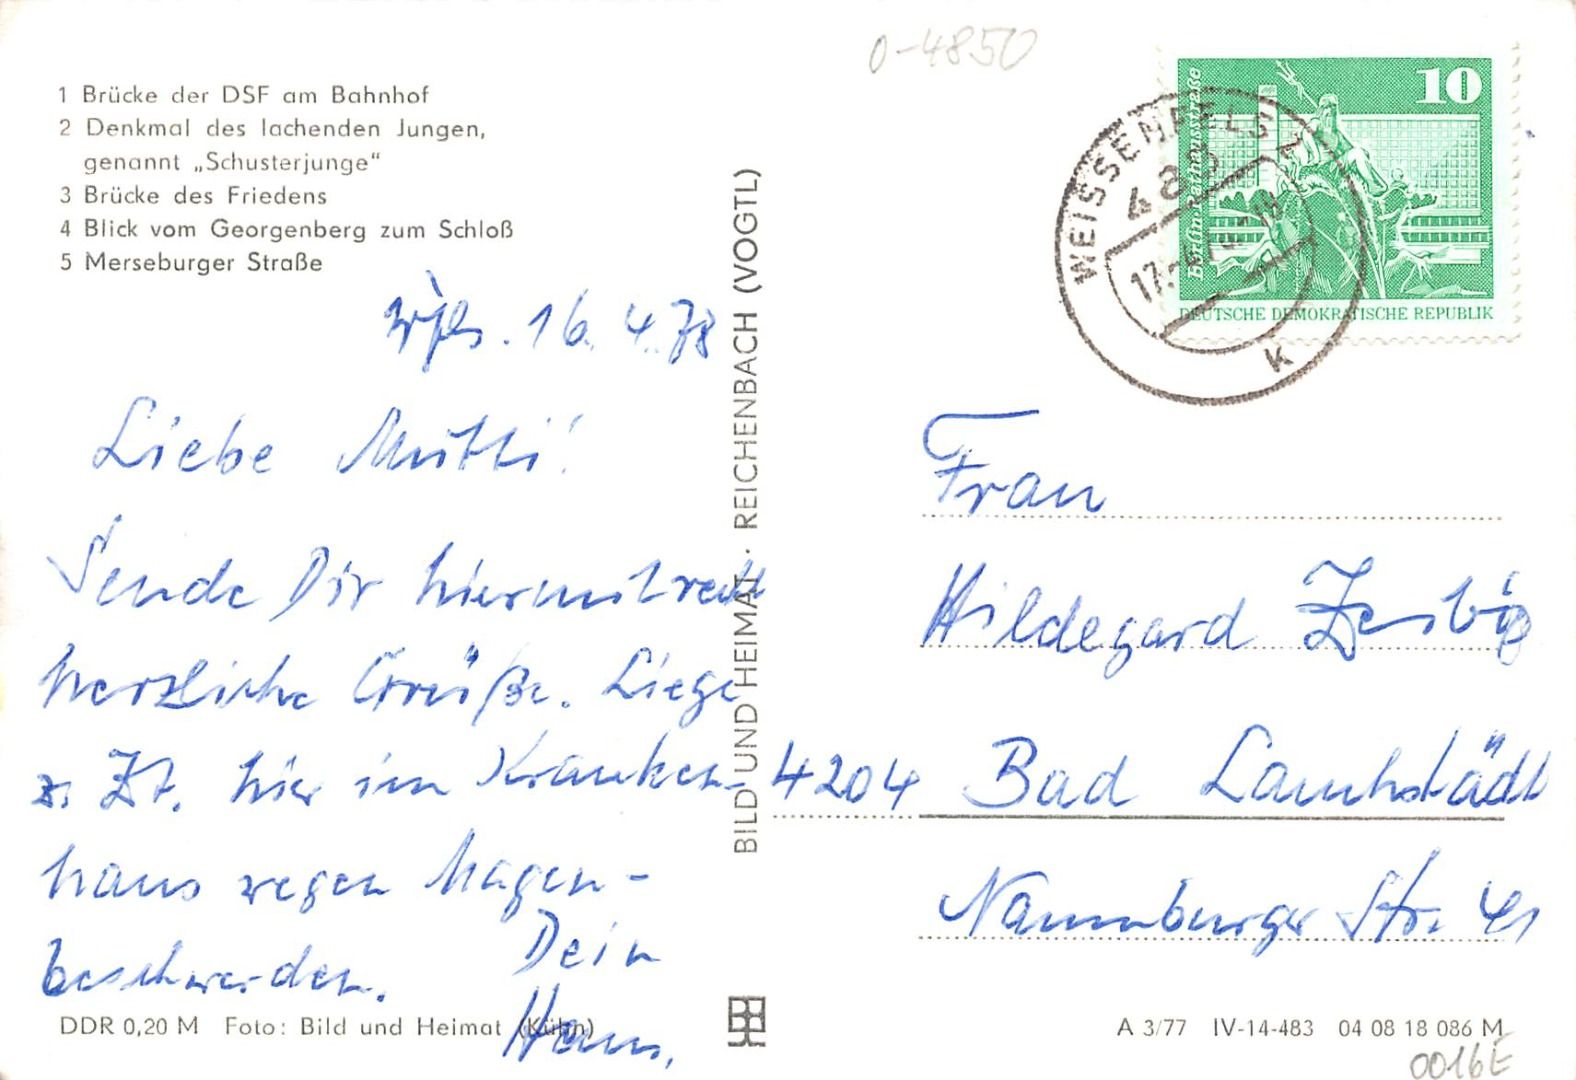 1 Brücke der DSF am Bahnhof
2 Denkmal des lachenden Jungen,
genannt „Schusterjunge“
3 Brücke des Friedens
4 Blick vom Georgenberg zum Schloß
5 Merseburger Straße
Wfls. 16. 4. 78
Liebe Mutti!
Sende Dir hiermit recht
herzliche Grüße. Liege
z. Zt. hier im Kranken-
haus wegen Magen-
beschwerden.
Dein
Hans.
DDR 0,20 M Foto: Bild und Heimat (Kühn)
BILD UND HEIMAT · REICHENBACH (VOGTL)
0-4850
10
Berlin-Rathausstraße
DEUTSCHE DEMOKRATISCHE REPUBLIK
WEISSENFELS
k
Frau
Hildegard Zerbig
4204 Bad Lauchstädt
Naumburger Str. 41
A 3/77 IV-14-483 04 08 18 086 M
0016E